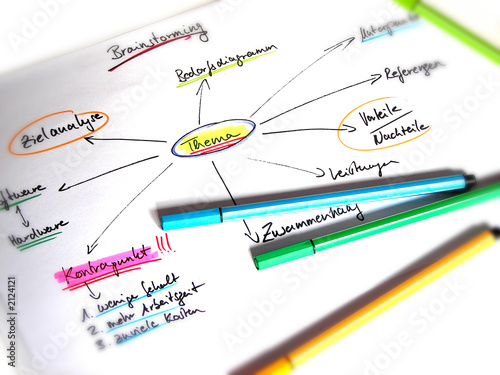 Brainstorming
Bedarfsdiagramm
Unterpunkte
Referenzen
Zielanalyse
Thema
Vorteile
Nachteile
Leistungen
Software
Hardware
Zusammenhang
Kontrapunkt !!!
1. wenige Gehalt
2. mehr Arbeitszeit
3. zuviele Kosten
Adobe Stock | #2124121